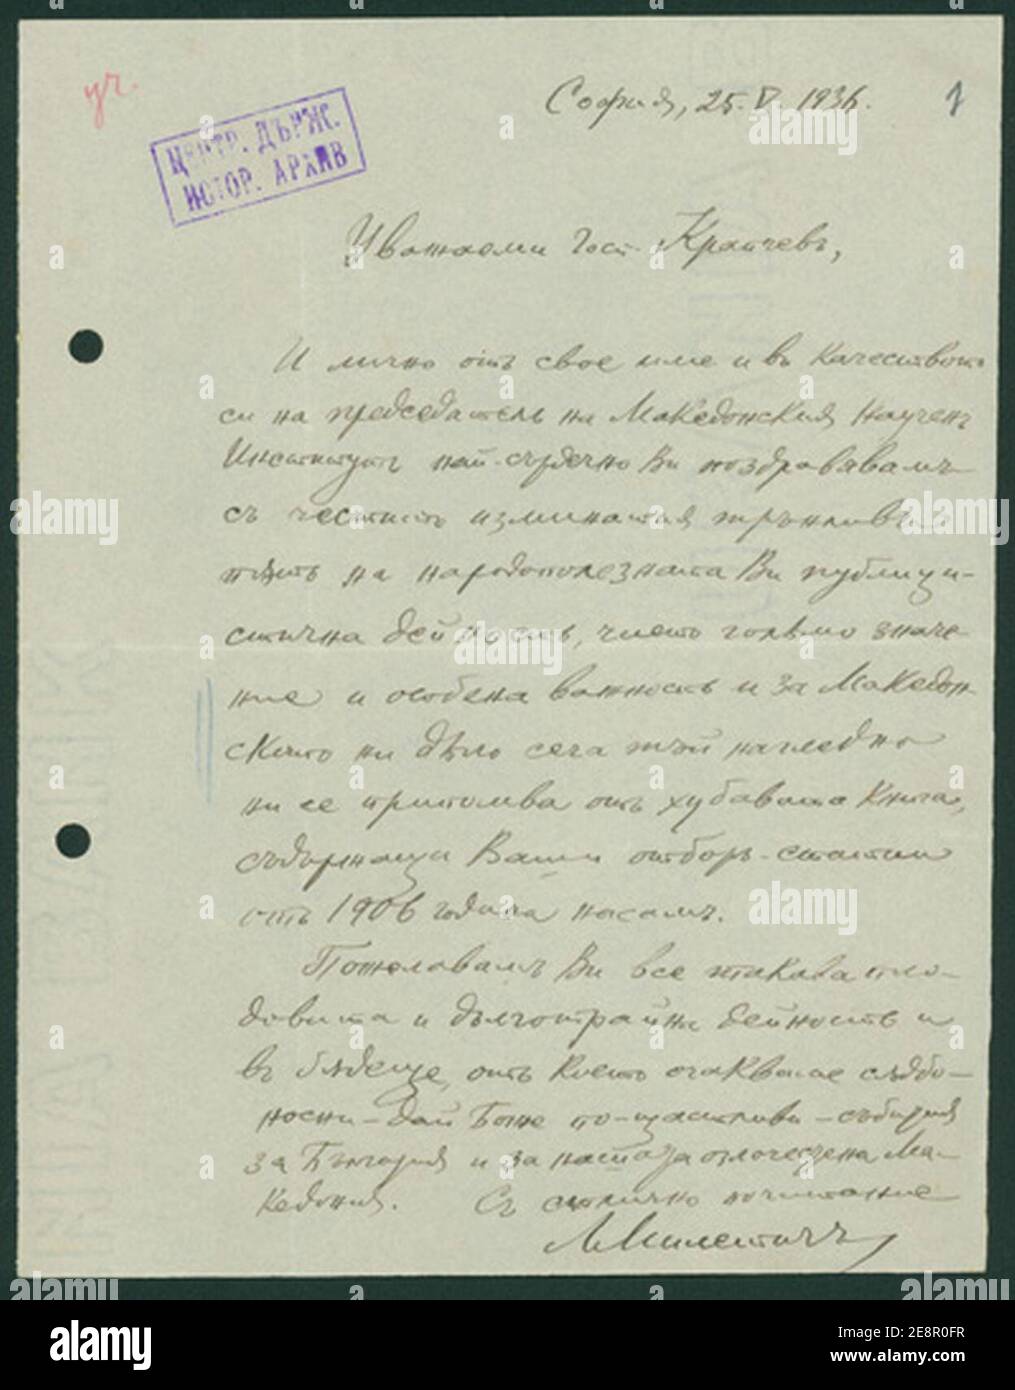 уч.
София, 25.V. 1936.
1
ЦЕНТР. ДЪРЖ.
ИСТОР. АРХИВ
Уважаеми Госп. Крапчевъ,
И лично отъ свое име и въ качеството
си на председатель на Македонския Наученъ
Институтъ най-сърдечно Ви поздравявамъ
съ честито изминатия трънливъ
пѫть на народополезната Ви публици-
стична дейность, чието голѣмо значе-
ние и особена важность и за Македон-
ското ни дѣло сега тъй нагледно
ни се припомва отъ хубавата Книга,
съдържаща Ваши отборъ-статии
отъ 1906 година насамъ.
Пожелавамъ Ви все такава пло-
довита и дълготрайна дейность и
въ бѫдеще, отъ което очакваме сѫдбо-
носни – дай Боже по-щастливи – събития
за България и за нашата злочестена Ма-
кедония. Съ отлично почитание
Л. Милетичъ
alamy
a
Image ID: 2E8R0FR
www.alamy.com